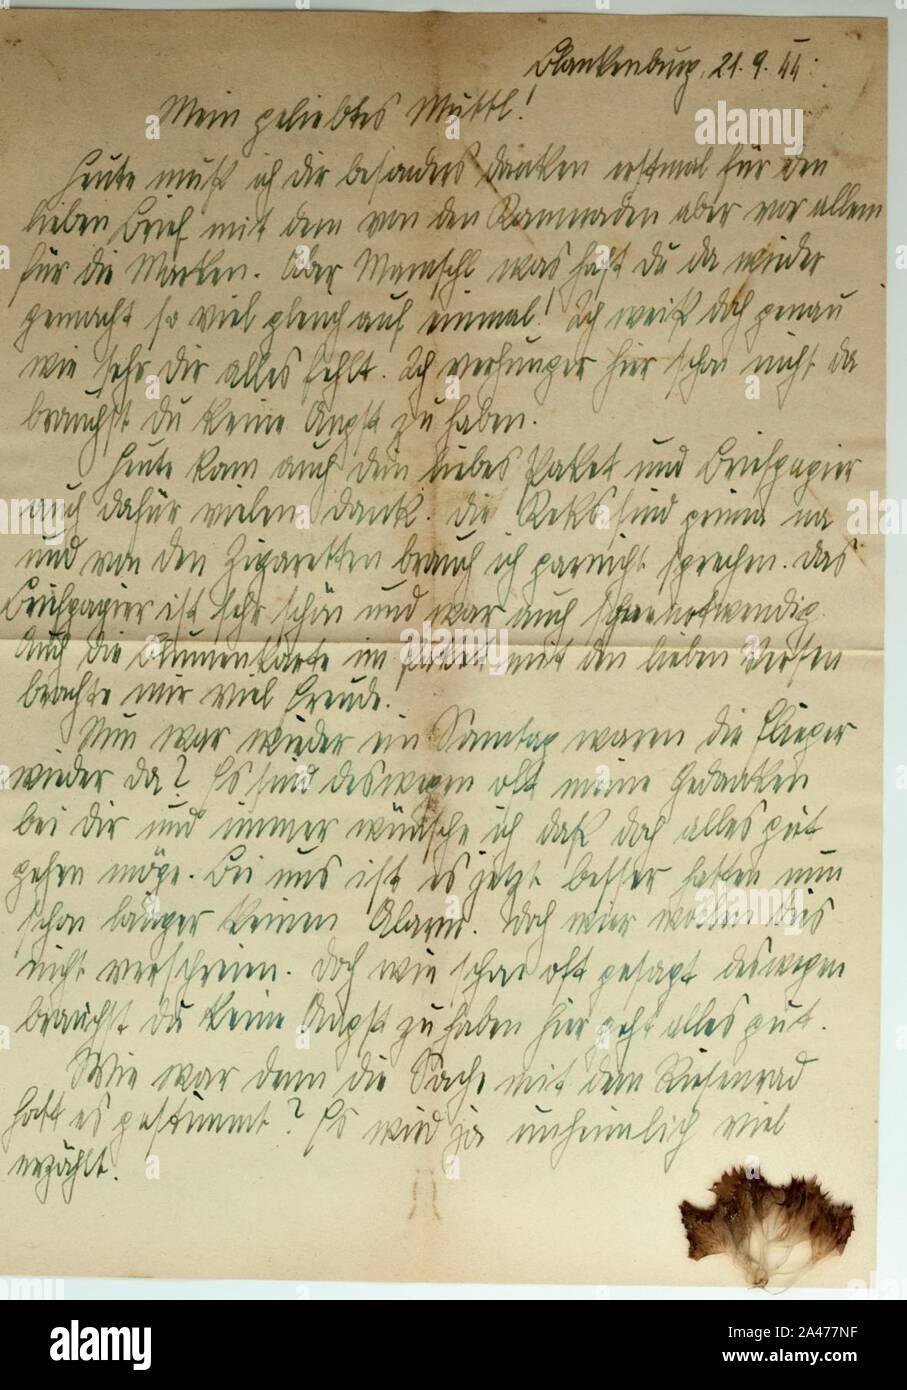 Blankenburg, 21.9.44.
Mein geliebtes Muttl!
Heute muß ich dir besonders danken erstmal für den
lieben Brief mit dem von den Kammraden aber vor allem
für die Marken. Aber Mamschl was hast du da wieder
gemacht so viel gleich auf einmal! Ich weiß doch genau
wie sehr dir alles fehlt. Ich verhunger hier schon nicht da
brauchst du keine Angst zu haben.
Heute kam auch dein liebes Paket und Briefpapier
auch dafür vielen Dank. Die Keks sind prima na
und von den Zigaretten brauch ich garnicht sprechen. Das
Briefpapier ist sehr schön und war auch schon notwendig.
Auch die Blumenkarte im mit den lieben Versen
brachte mir viel Freude.
Nun war wieder ein Sonntag waren die Flieger
wieder da? Es sind deswegen oft meine Gedanken
bei dir und immer wünsche ich daß doch alles gut
gehen möge. Bei uns ist es jetzt besser hatten nun
schon länger keinen Alarm. Doch wir wollen dies
nicht verschreien. Doch wie schon oft gesagt deswegen
brauchst du keine Angst zu haben hier geht alles gut.
Wie war denn die Sache mit dem Riesenrad
hat es gestimmt? Es wird ja unheimlich viel
erzählt.
alamy
alamy
alamy
2A477NF
www.alamy.com